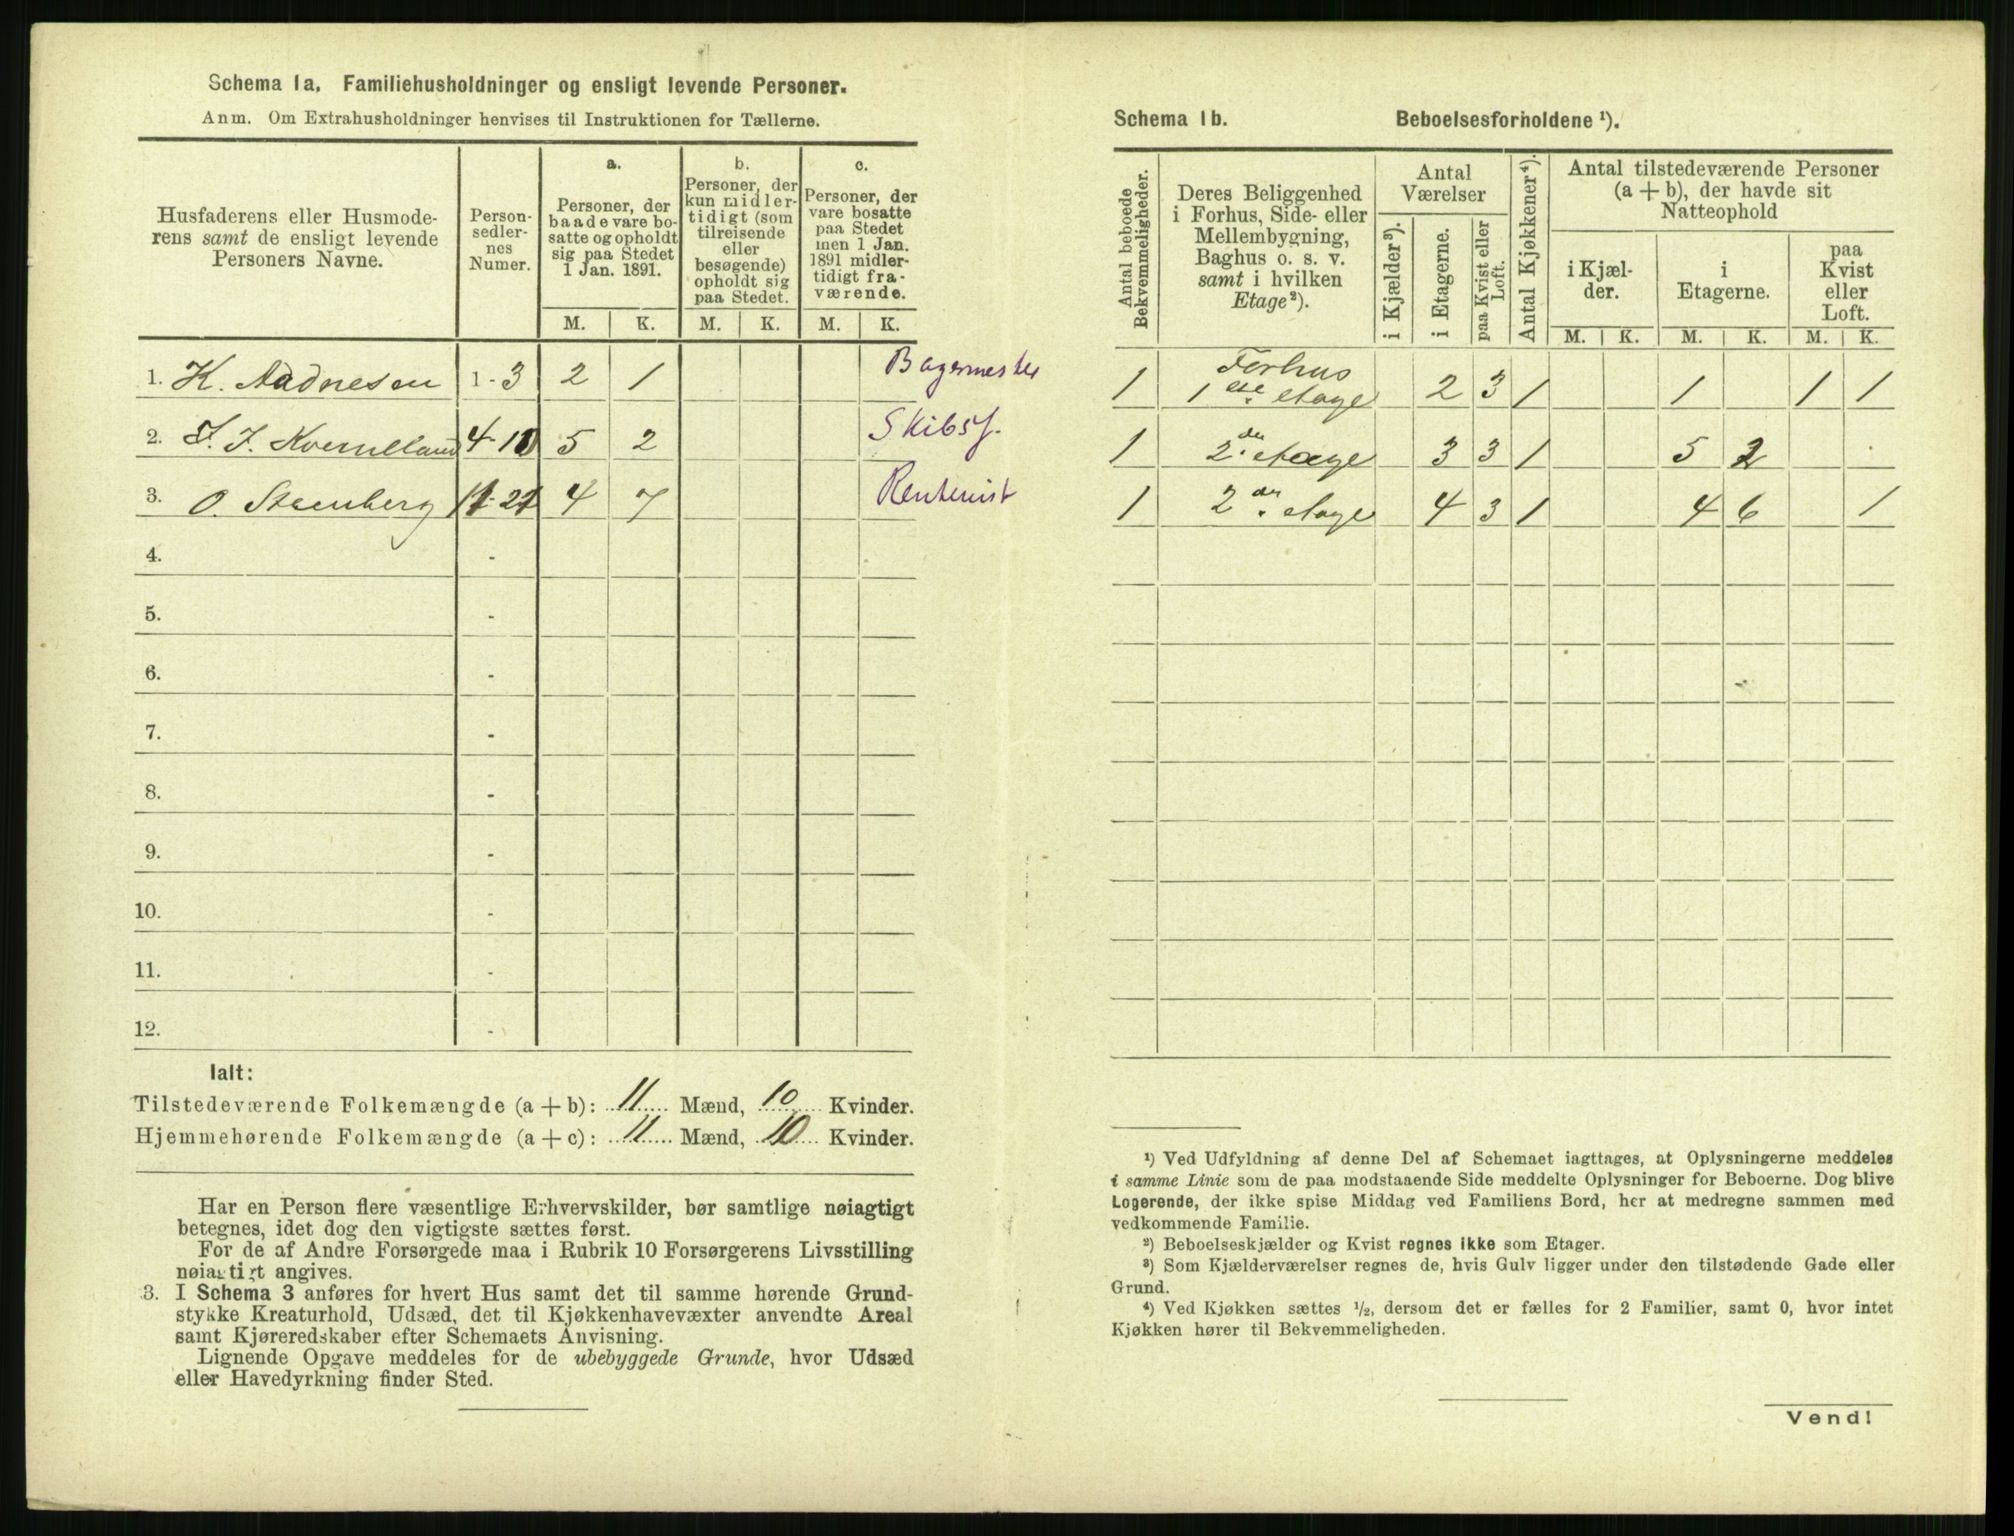 Schema 1a. Familiehusholdninger og ensligt levende Personer.
Anm. Om Extrahusholdninger henvises til Instruktionen for Tællerne.
Husfaderens eller Husmode-
rens samt de ensligt levende
Personers Navne.
Person-
sedler-
nes
Numer.
a.
Personer, der
baade vare bo-
satte og opholdt
sig paa Stedet
1 Jan. 1891.
b.
Personer, der
kun midler-
tidigt (som
tilreisende
eller
besøgende)
opholdt sig
paa Stedet.
c.
Personer, der
vare bosatte
paa Stedet
men 1 Jan.
1891 midler-
tidigt fra-
værende.
M. K. M. K. M. K.
1. K. Aadnesen 1 - 3 2 1 Bagermester
2. J. J. Kvernelland 4-10 5 2 Skibsf.
3. O. Steenberg 11-21 4 7 Rentenist
4. -
5. -
6. -
7. -
8. -
9. -
10. -
11. -
12. -
Ialt:
Tilstedeværende Folkemængde (a + b): 11 Mænd, 10 Kvinder.
Hjemmehørende Folkemængde (a + c): 11 Mænd, 10 Kvinder.
Har en Person flere væsentlige Erhvervskilder, bør samtlige nøiagtigt
betegnes, idet dog den vigtigste sættes først.
For de af Andre Forsørgede maa i Rubrik 10 Forsørgerens Livsstilling
nøiagtigt angives.
3. I Schema 3 anføres for hvert Hus samt det til samme hørende Grund-
stykke Kreaturhold, Udsæd, det til Kjøkkenhavevæxter anvendte Areal
samt Kjøreredskaber efter Schemaets Anvisning.
Lignende Opgave meddeles for de ubebyggede Grunde, hvor Udsæd
eller Havedyrkning finder Sted.
Schema 1b. Beboelsesforholdene ¹).
Antal beboede
Bekvemmeligheder.
Deres Beliggenhed
i Forhus, Side- eller
Mellembygning,
Baghus o. s. v.
samt i hvilken
Etage²).
Antal
Værelser
i Kjælder³).
i Etagerne.
paa Kvist eller
Loft.
Antal Kjøkkener⁴).
Antal tilstedeværende Personer
(a + b), der havde sit
Natteophold
i Kjæl-
der.
i
Etagerne.
paa
Kvist
eller
Loft.
M. K. M. K. M. K.
1 Forhus
1ste etage 2 3 1 1 1 1
1 2den etage 3 3 1 5 2
1 2den etage 4 3 1 4 6 1
¹) Ved Udfyldning af denne Del af Schemaet iagttages, at Oplysningerne meddeles
i samme Linie som de paa modstaaende Side meddelte Oplysninger for Beboerne. Dog blive
Logerende, der ikke spise Middag ved Familiens Bord, her at medregne sammen med
vedkommende Familie.
²) Beboelseskjælder og Kvist regnes ikke som Etager.
³) Som Kjælderværelser regnes de, hvis Gulv ligger under den tilstødende Gade eller
Grund.
⁴) Ved Kjøkken sættes ½, dersom det er fælles for 2 Familier, samt 0, hvor intet
Kjøkken hører til Bekvemmeligheden.
Vend!